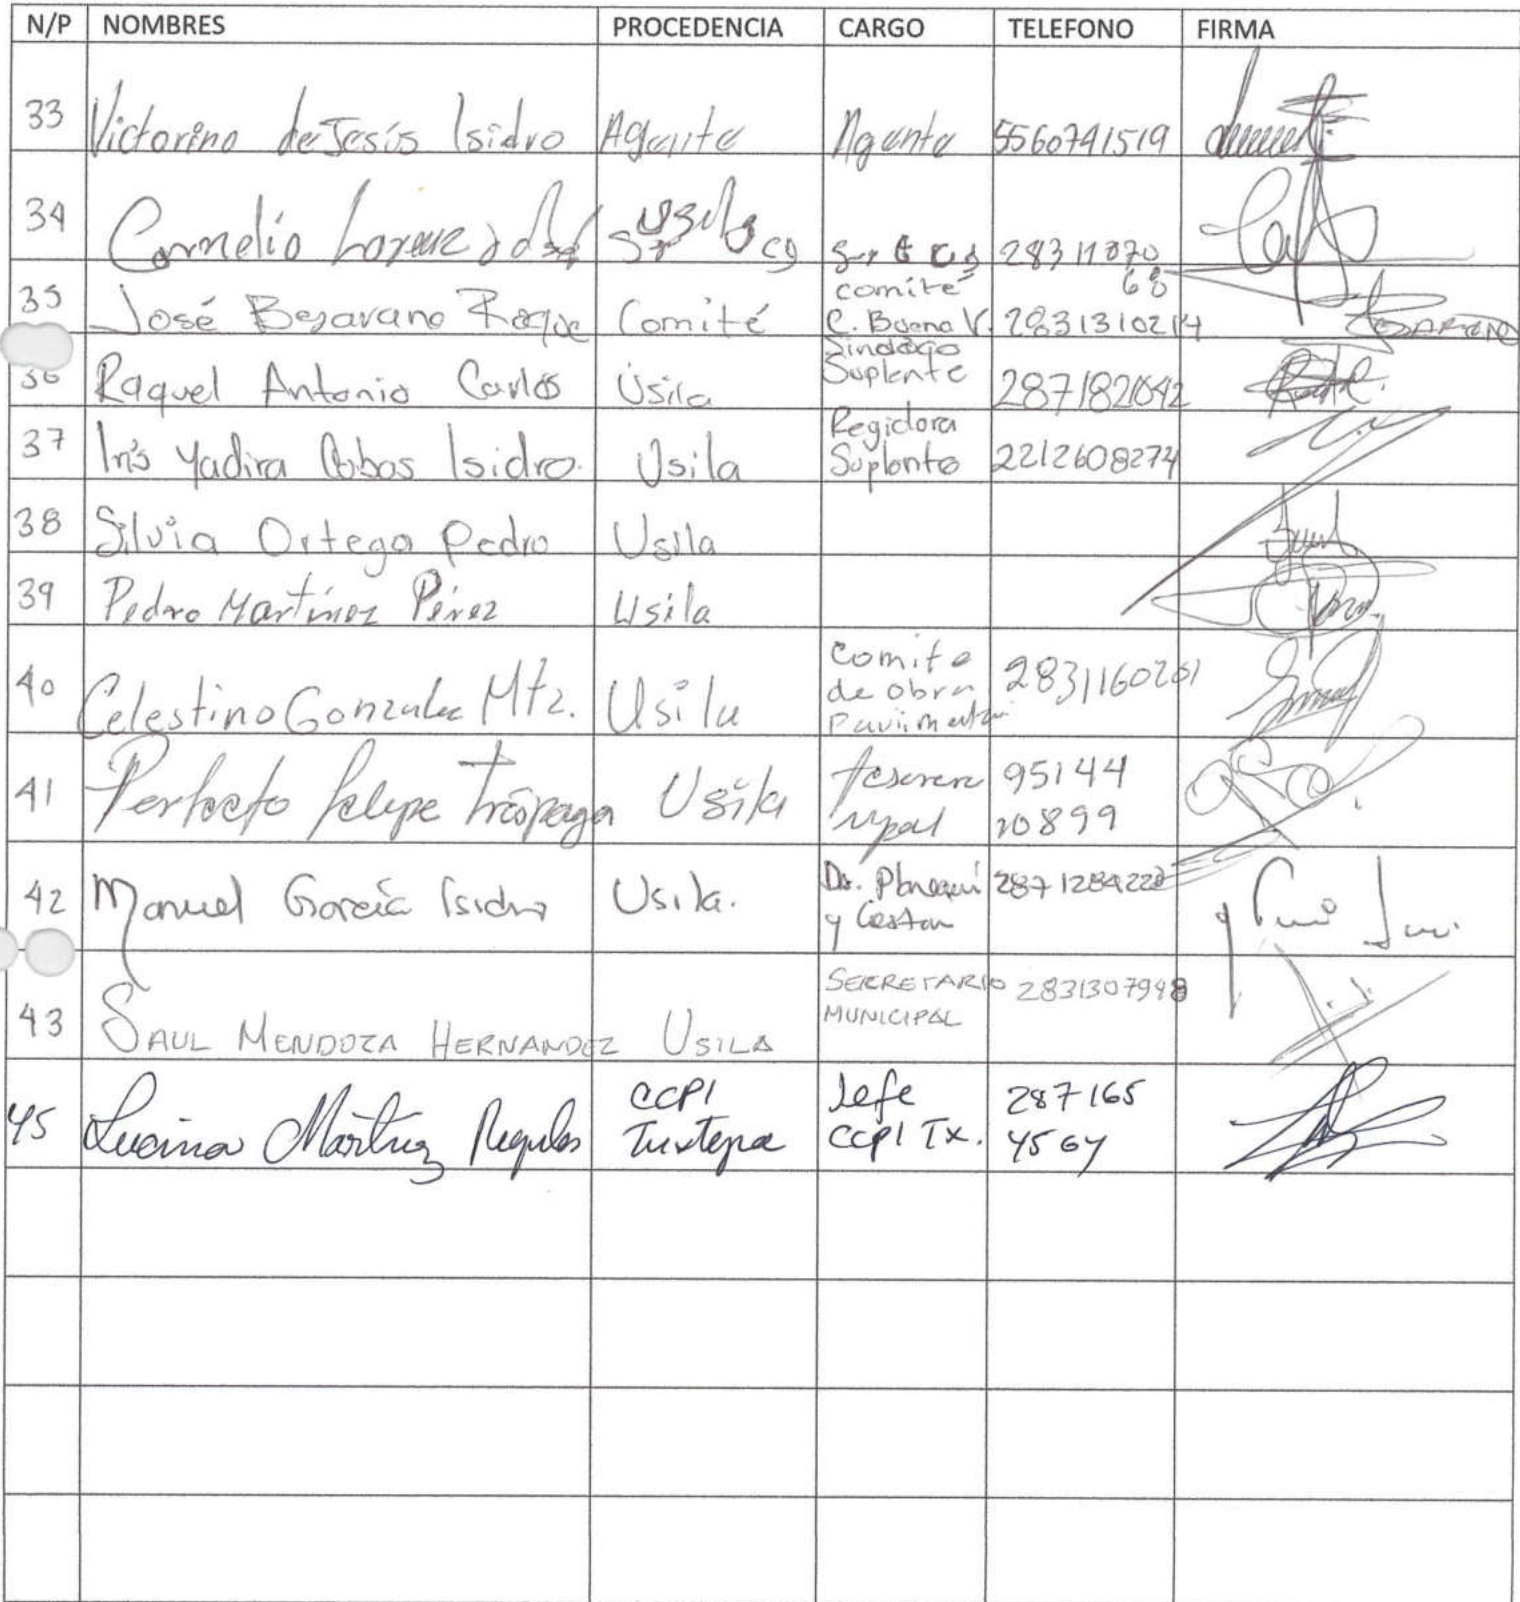 N/P NOMBRES PROCEDENCIA CARGO TELEFONO FIRMA
33 Victorino de Jesús Isidro Agente Agente 5560741519
34 Cornelio Usila 283 11870
68
35 José Bejarano Roque Comité comité
C. Buena V. 2831310214
36 Raquel Antonio Carlos Úsila Sindago
Suplente 2871821042
37 Inés Yadira Cobos Isidro. Usila Regidora
Suplente 2212608274
38 Silvia Ortega Pedro Usila
39 Pedro Martínez Pérez Usila
40 Celestino Gonzalez Mtz. Usila Comite
de obra 2831160261
41 Perfecto Felipe Usila tesorero 95144
mpal 10899
42 Manuel García Isidro Usila. 2871284222
y Gestion
43 SAUL MENDOZA HERNANDEZ USILA SECRETARIO 2831307948
MUNICIPAL
45 Lucina Martínez Regules CCPI Jefe 287 165
Tuxtepec CCPI TX. 4564